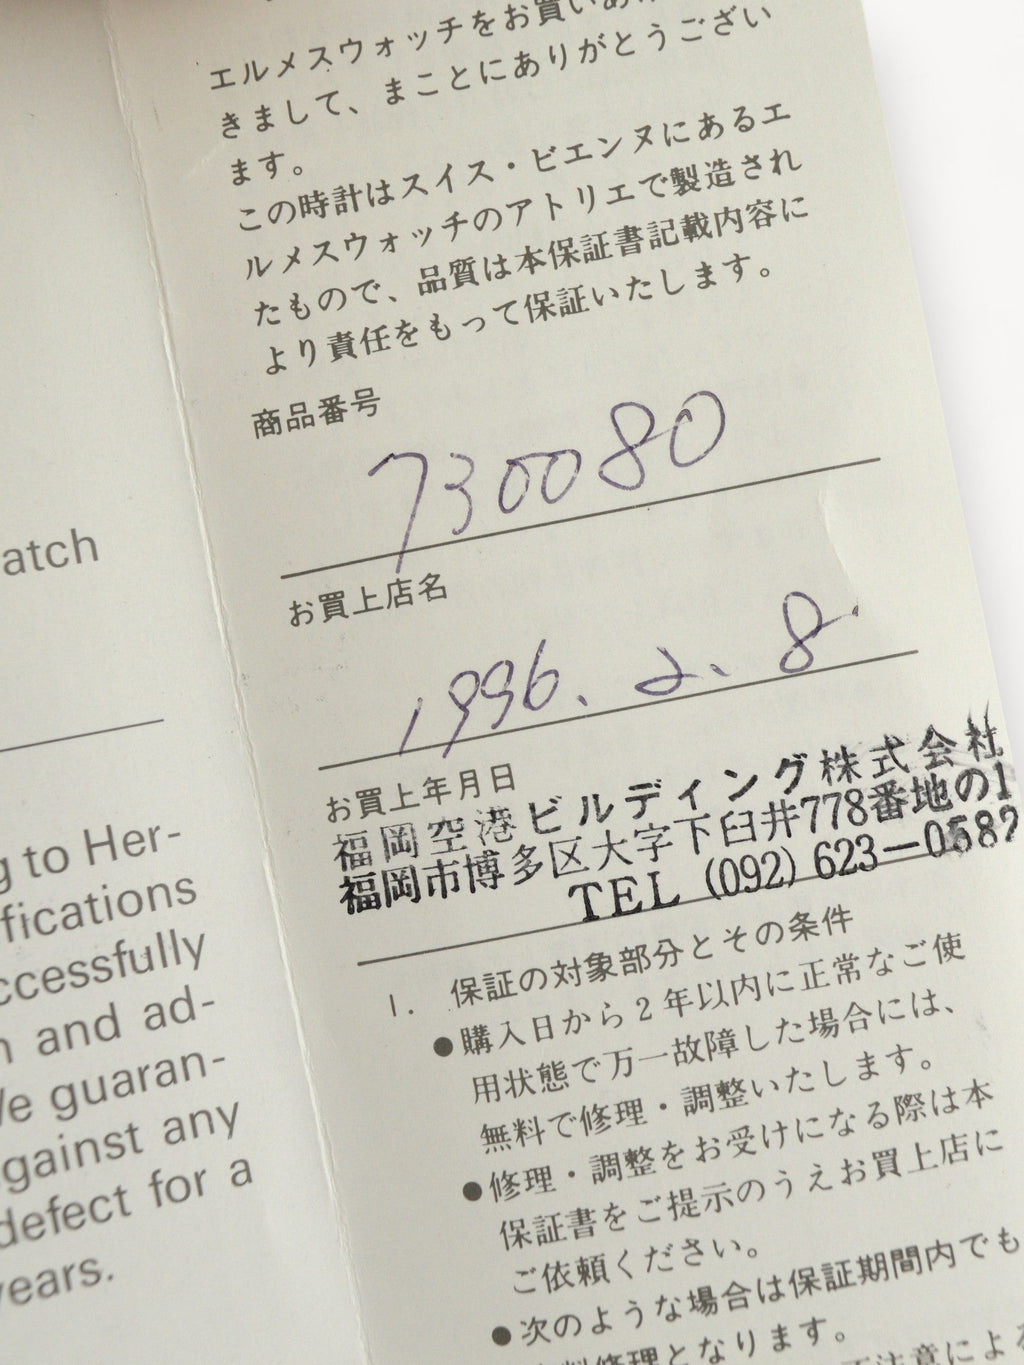 エルメスウォッチをお買いあ
きまして、まことにありがとうござい
ます。
この時計はスイス・ビエンヌにあるエ
ルメスウォッチのアトリエで製造され
たもので、品質は本保証書記載内容に
より責任をもって保証いたします。
商品番号
730080
お買上店名
1996.2.8
お買上年月日
福岡空港ビルディング株式会社
福岡市博多区大字下臼井778番地の1
TEL (092) 623-0587
1. 保証の対象部分とその条件
●購入日から2年以内に正常なご使
用状態で万一故障した場合には、
無料で修理・調整いたします。
●修理・調整をお受けになる際は本
保証書をご提示のうえお買上店に
ご依頼ください。
●次のような場合は保証期間内でも
料修理となります。
注意による
atch
g to Her-
fications
ccessfully
n and ad-
Ve guaran-
gainst any
defect for a
years.